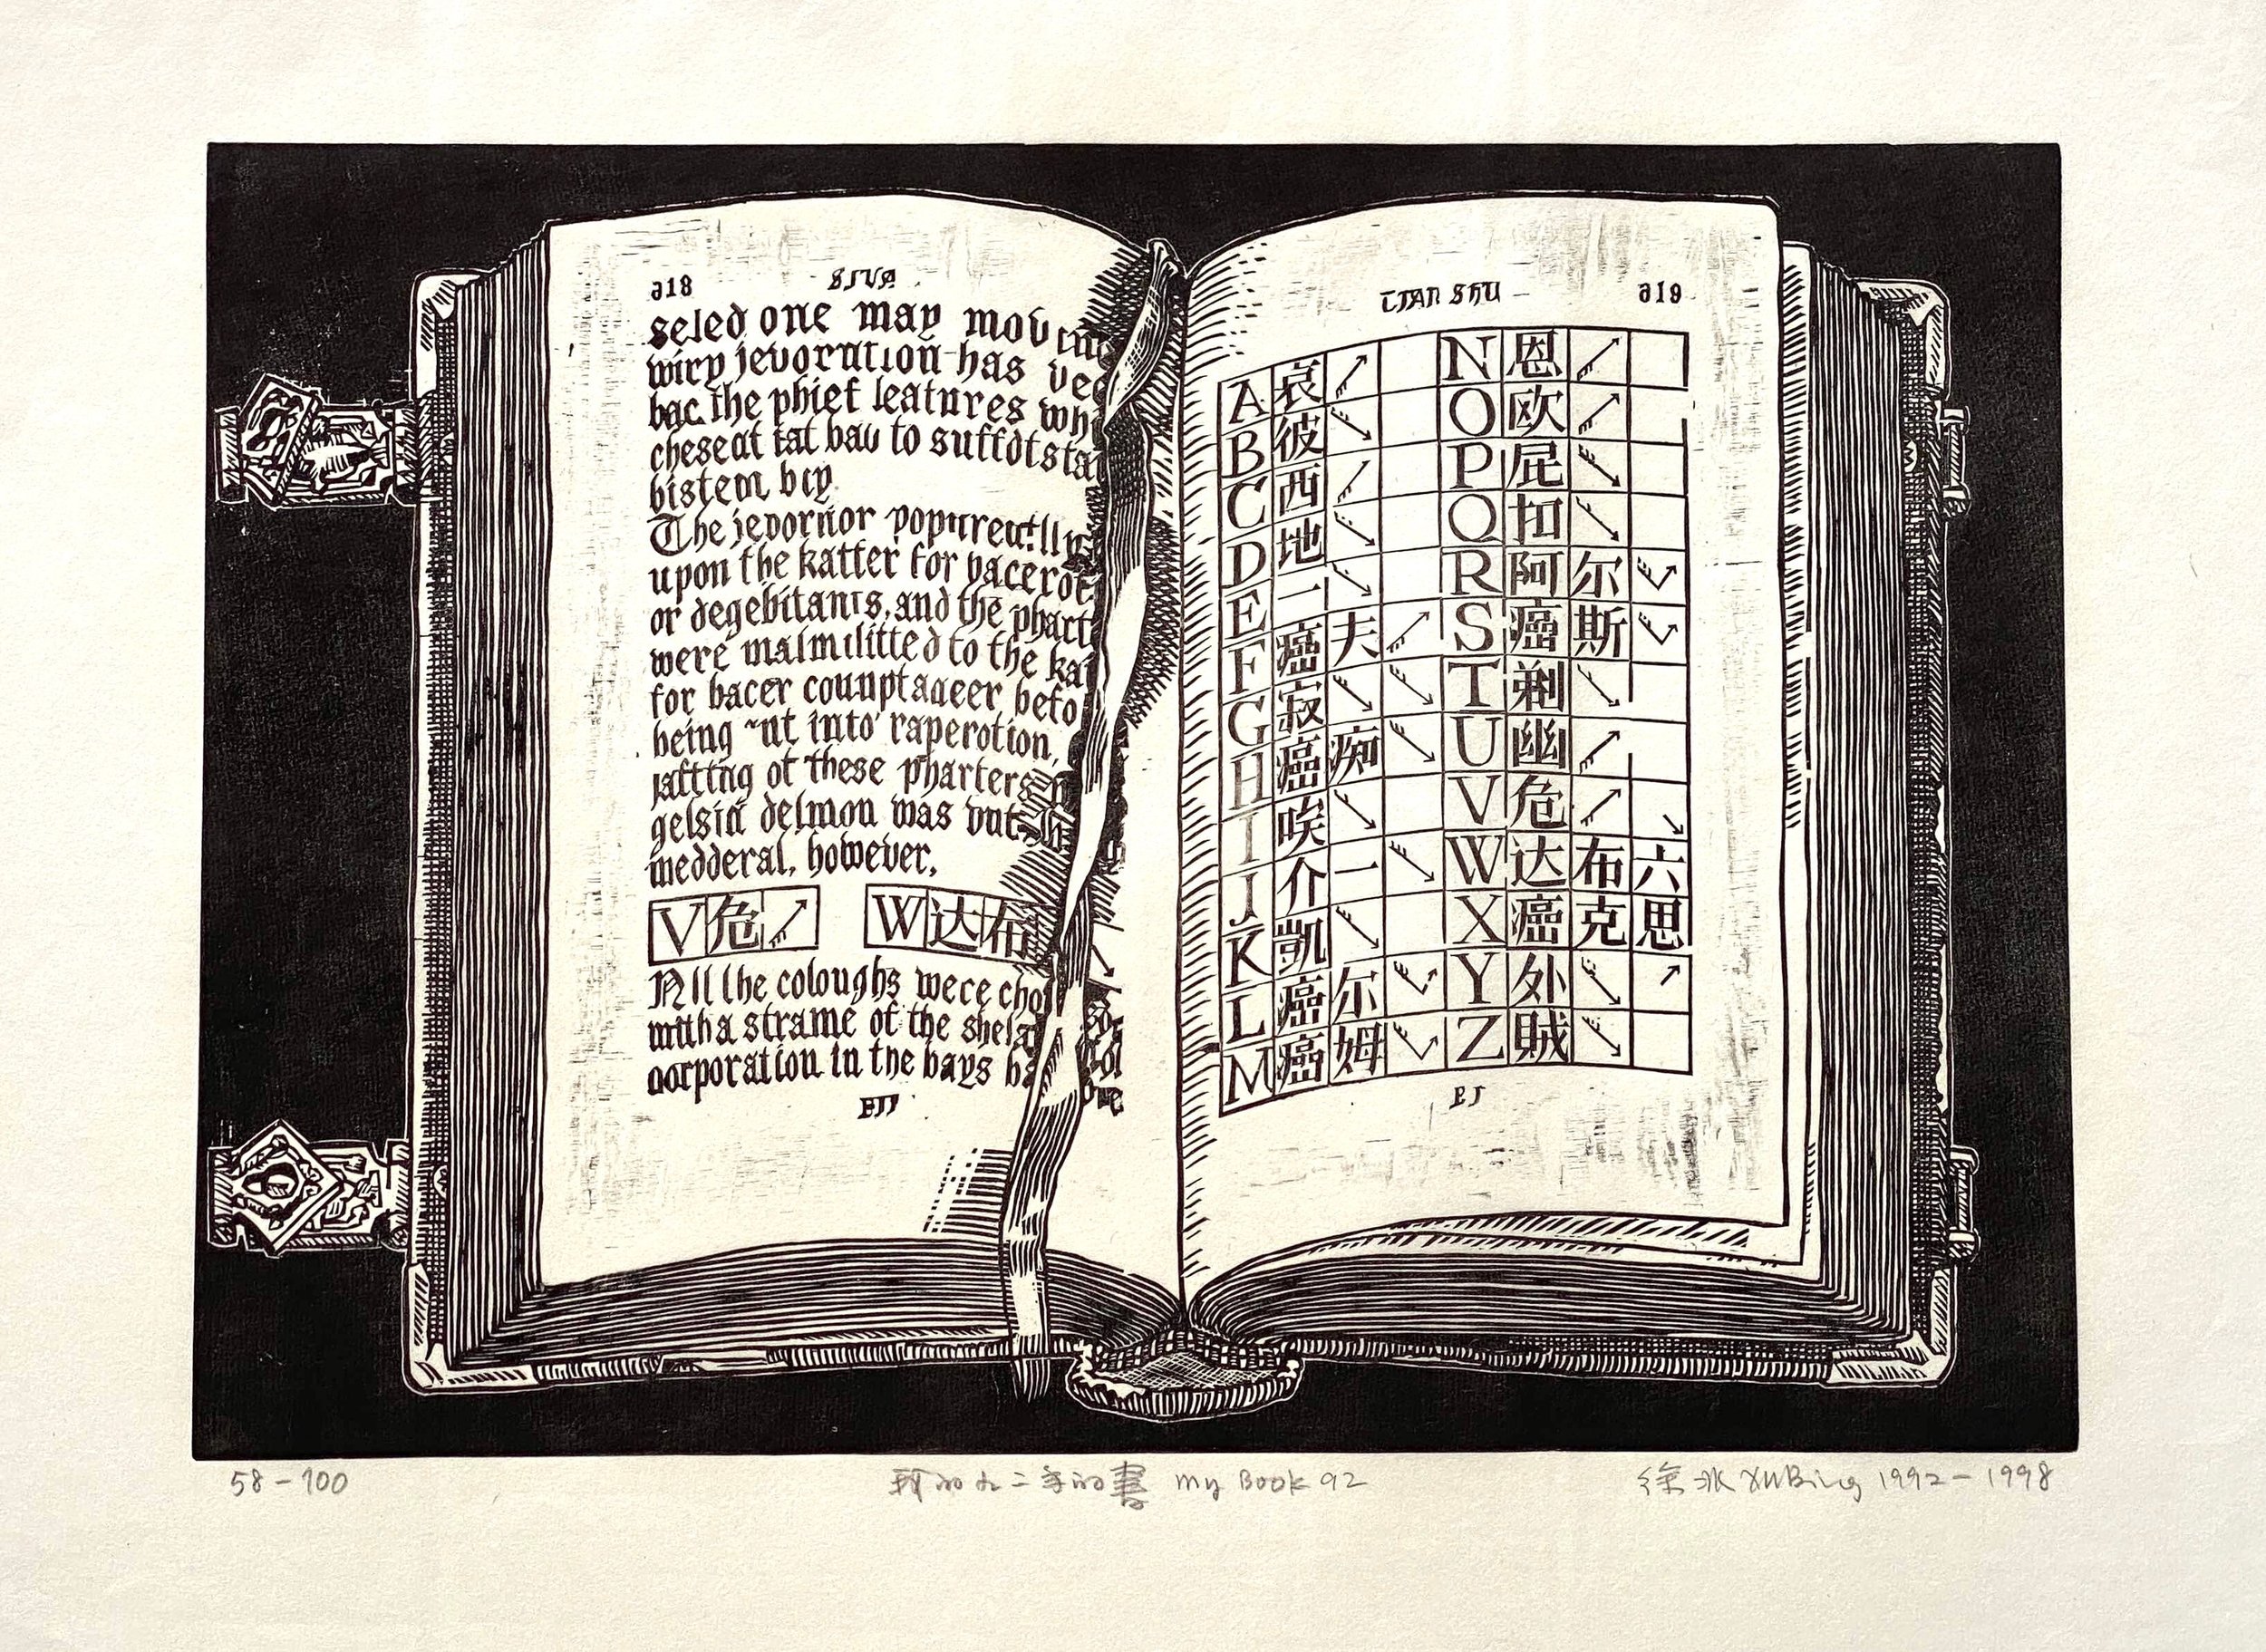 a18 SIVA
seled one may mov
wiry jevoration has vee
bac. the phief leatnres wh
cheseat tat bau to suffotsta
bistem, bry
The jevornor
upon the katter for vacerot
or degebitants, and the phart
were malmilitted to the ka
for bacer counptaaeer befo
being ut into raperotion,
jaftting of these pharters
gelsia delmon was vnt
medderal, however,
V 危 W 达 布
All the coloughs wece chol
mitha strame of the shela
aorporation in the bays ba
TIAN SHU a19
A 哀 N 恩
B 彼 O 欧
C 西 P 屁
D 地 Q 扣
E 一 R 阿 尔
F 癌 夫 S 癌 斯
G 寂 T 剃
H 癌 痴 U 幽
I 唉 V 危
J 介 一 W 达 布 六
K 凯 X 癌 克 思
L 癌 尔 Y 外
M 癌 姆 Z 贼
58-100 我的九二年的書 My Book 92 徐冰 XuBing 1992-1998